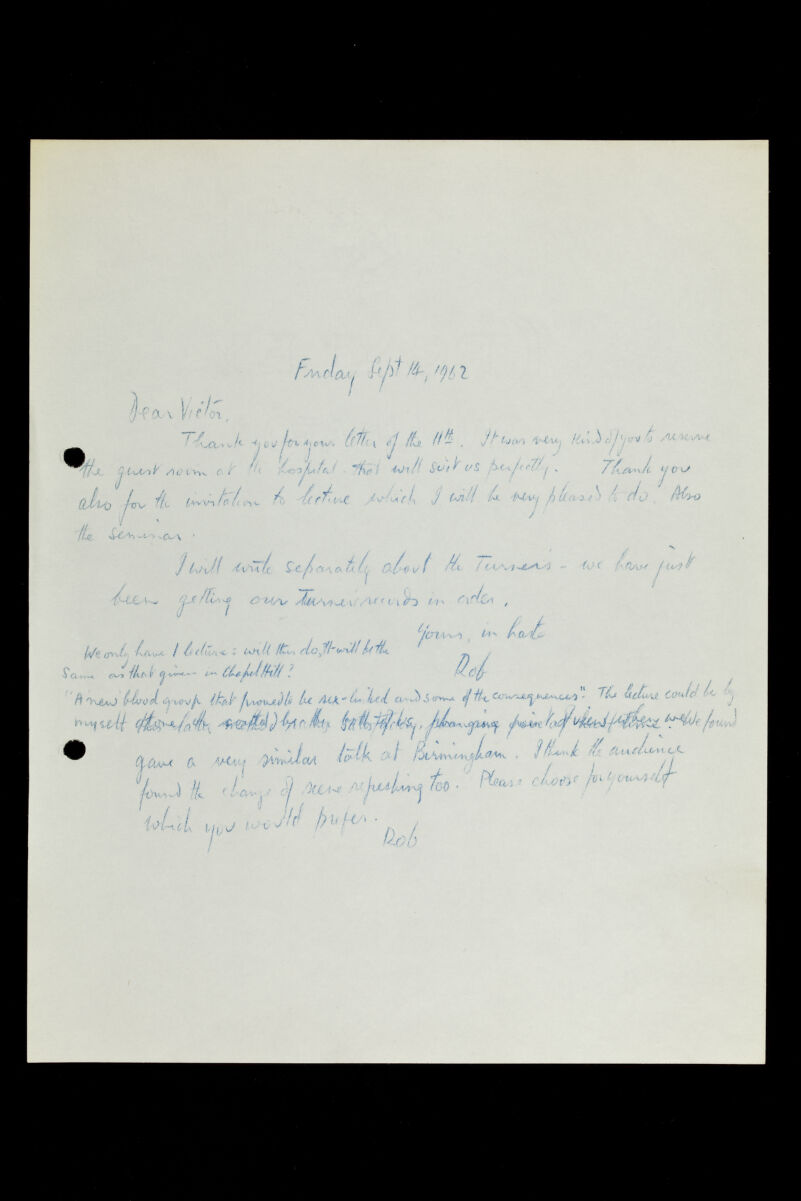 Friday Sept 14, 1962
Dear Victor,
Thank you for your letter of the 11th. It was very kind of you to reserve
the guest room at the hospital - that will suit us perfectly. Thank you
also for the invitation to lecture which I will be very pleased to do. Also
the seminar.
I will write separately about the Turners - we have just
been getting our Turner records in order.
Yours, in haste
Rob
We only have 1 lecture: will this do, It will be the
same as that given in Chapel Hill?
"A 'new' blood group that proved to be sex-linked and some of the consequences". The lecture could be by
myself We found
gave a very similar talk at Birmingham. I think the audience
found the change of scene refreshing too. Please choose for yourself
which you would prefer.
Rob